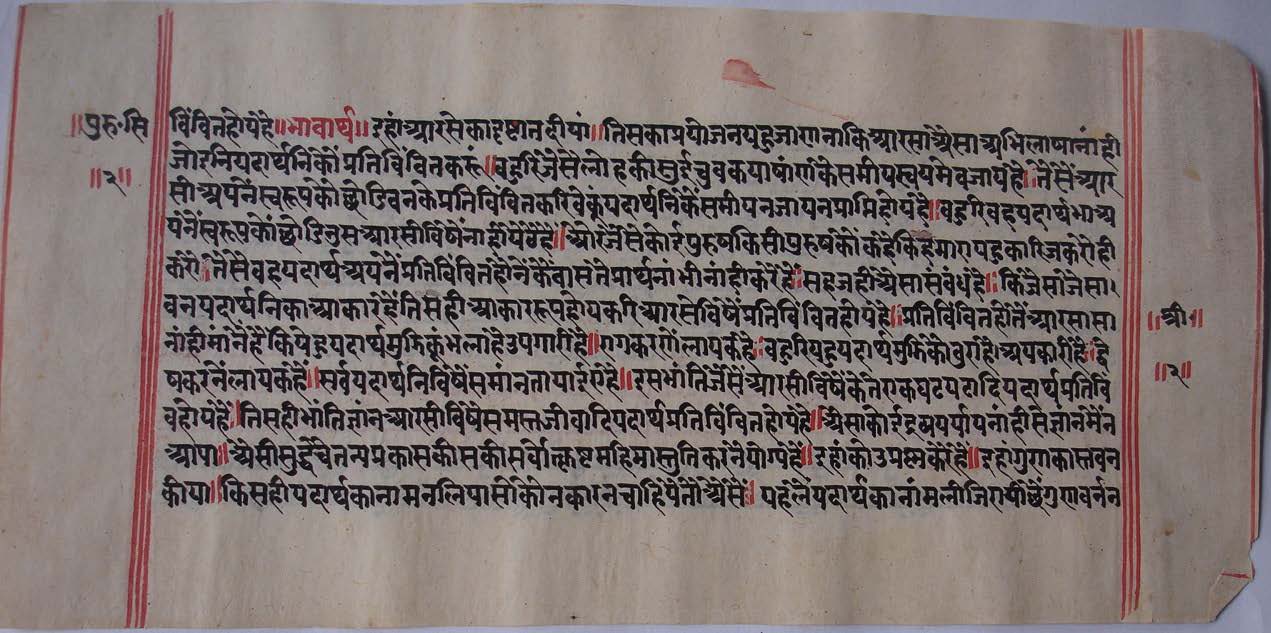 ॥पुरु.सि
॥२॥
विंवितहोयहै॥भावार्थ॥इहांआरसेकादृष्टानदीयां॥तिसकाप्रयोजनयहुजाणनाकिआरसाअैसाअभिलाषानांही
जोइनिपदार्थनिकौंप्रतिविंवितकरूं॥वहुरिजैसेंलोहकीसुईचुवकपाषांणकेसमीपस्वयमेवजायहै॥तैसेंआर
सीअपनेस्वरूपकोंछोडिवनकेप्रतिविंवितकरिवेकूंपदार्थनिकेंसमीपनजायनप्राप्तिहोयहै॥वहुरिवहपदार्थभीअ
पनेंस्वरूपकोंछोडिउसआरसीविषेंनांहीपैठेहै॥औरजैसेंकोईपुरुषकिसीपुरुषकोंकहैकिहमारायहुकारिजकरोही
करो॥तैसेंवहपदार्थअपनेंप्रतिविंवितहोनेंकेवासतेप्रार्थनांभीनांहीकरैहै॥सहजहीअैसासंवंधहै॥किजैसाजैसा।
वनपदार्थनिकाआकारहैतिसहीआकाररूपहोयकरीआरसेविषेंप्रतिविंवितहोयहै॥प्रतिविंवितहोतैंआरसाअैसा
नांहीमांनेहैकियेहुपदार्थमुजिकूंभलाहैउपगारीहै॥रागकरणेंलायकहै॥वहुरियहुपदार्थमुजिकोवुराहैअपकारीहै॥द्वे
षकरनेंलायकहै॥सर्वपदार्थनिविषेंसमांनतापाईएहै॥इसभांतिजैसेंआरसीविषेंकेतेएकघटपटादिपदार्थप्रतिविं
वहोयहै॥तिसहीभांतिज्ञांनआरसीविषेसमस्तजीवादिपदार्थप्रतिविंवितहोयहै॥अैसाकोईद्रव्यपर्यायनांहीसेज्ञानमेंन
आया॥अैसीसुद्धचेतन्यप्रकासकीसकीसर्वोत्कृष्टमहिमास्तुतिकरनेंयोग्यहै॥इहांकोउप्रष्नकरेहै॥इहांगुणकास्तवन
कीया॥किसहीपदार्थकानामनलियासोकोनकारनचाहियेतोअैसें॥पहलेंपदार्थकानांमलीजिएपीछैंगुणवर्नन
॥श्री॥
॥२॥